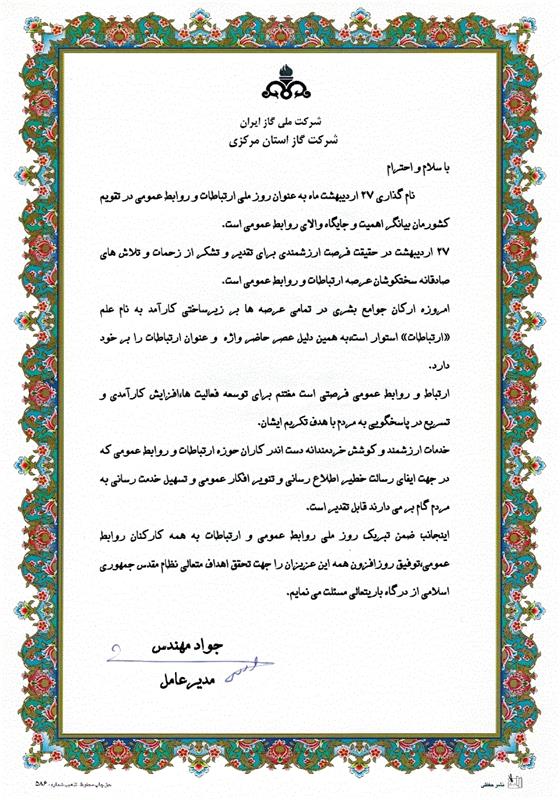 شرکت ملی گاز ایران
شرکت گاز استان مرکزی
با سلام و احترام
نام گذاری ۲۷ اردیبهشت ماه به عنوان روز ملی ارتباطات و روابط عمومی در تقویم
کشورمان بیانگر اهمیت و جایگاه والای روابط عمومی است.
۲۷ اردیبهشت در حقیقت فرصت ارزشمندی برای تقدیر و تشکر از زحمات و تلاش های
صادقانه سختکوشان عرصه ارتباطات و روابط عمومی است.
امروزه ارکان جوامع بشری در تمامی عرصه ها بر زیرساختی کارآمد به نام علم
«ارتباطات» استوار است،به همین دلیل عصر حاضر واژه و عنوان ارتباطات را بر خود
دارد.
ارتباط و روابط عمومی فرصتی است مغتنم برای توسعه فعالیت ها،افزایش کارآمدی و
تسریع در پاسخگویی به مردم با هدف تکریم ایشان.
خدمات ارزشمند و کوشش خردمندانه دست اندر کاران حوزه ارتباطات و روابط عمومی که
در جهت ایفای رسالت خطیر اطلاع رسانی و تنویر افکار عمومی و تسهیل خدمت رسانی به
مردم گام بر می دارند قابل تقدیر است.
اینجانب ضمن تبریک روز ملی روابط عمومی و ارتباطات به همه کارکنان روابط
عمومی،توفیق روزافزون همه این عزیزان را جهت تحقق اهداف متعالی نظام مقدس جمهوری
اسلامی از درگاه باریتعالی مسئلت می نمایم.
جواد مهندس
مدیرعامل
نشر حفظی
حق چاپ محفوظ، تذهیب شماره: ۵۸۶